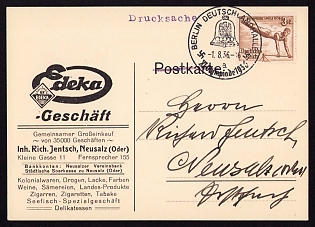 Drucksache
BERLIN DEUTSCHLANDHALLE
-1.8.36.-
Postkarte
Edeka
-Geschäft
Gemeinsamer Großeinkauf
von 35000 Geschäften
Inh. Rich. Jentsch, Neusalz (Oder)
Kleine Gasse 11 Fernsprecher 155
Bankkonten: Neusalzer Vereinsbank
Städtische Sparkasse zu Neusalz (Oder)
Kolonialwaren, Drogen, Lacke, Farben
Weine, Sämereien, Landes-Produkte
Zigarren, Zigaretten, Tabake
Seefisch-Spezialgeschäft
Delikatessen
Herrn
Richard Jentsch
Neusalz (Oder)